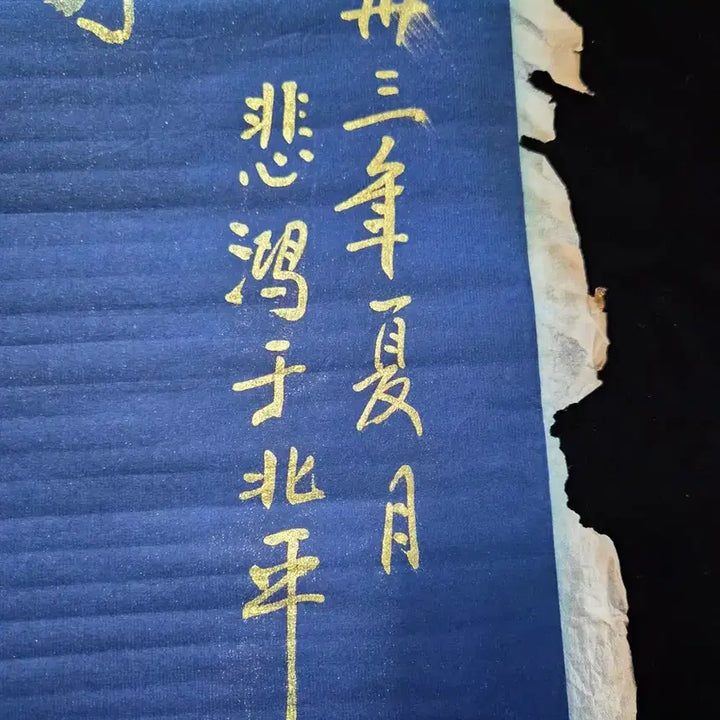 卅三年夏月
悲鸿于北平